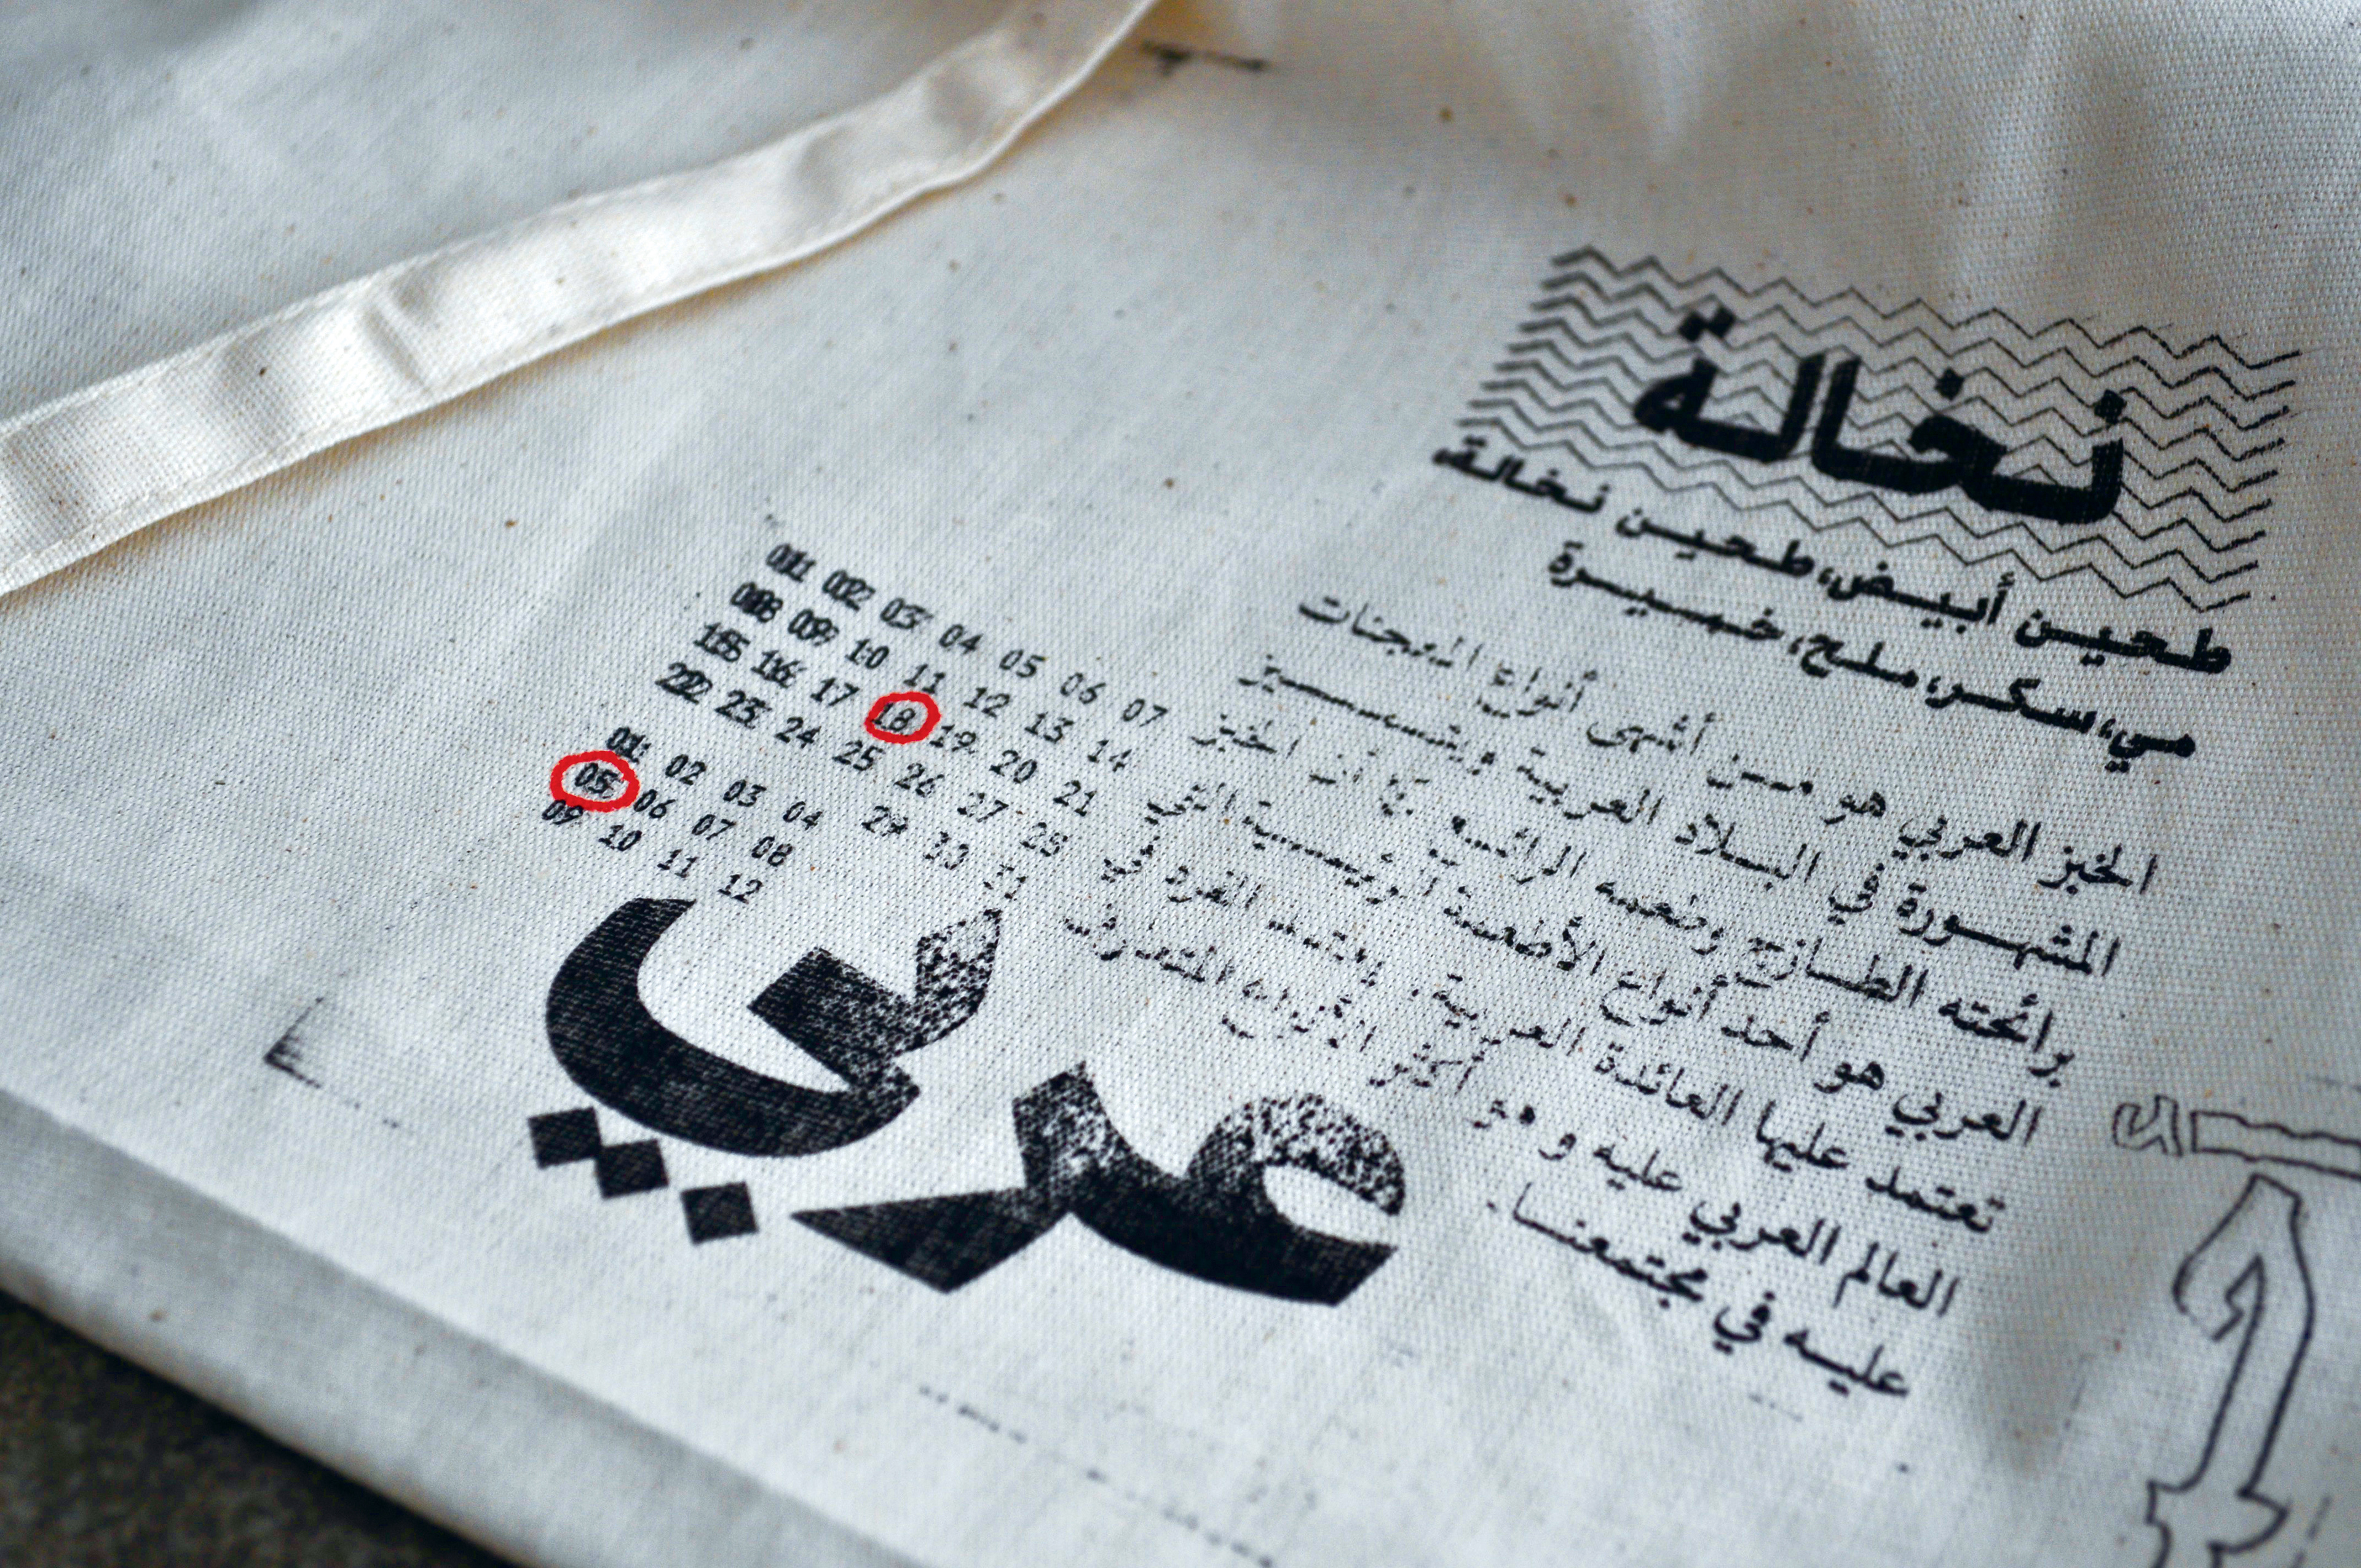 نخالة
طحين أبيض، طحين نخالة،
مي، سكر، ملح، خميرة
الخبز العربي هو من أشهى أنواع المعجنات
المشهورة في البلاد العربية ويتميز
برائحته الطازج وطعمه الرائع كما أن الخبز
العربي هو أحد أنواع الأطعمة الرئيسية التي
تعتمد عليها العائلة العربية. يعتمد الفرد في
العالم العربي عليه و هو أكثر الأنواع المتعارف
عليه في مجتمعنا.
01 02 03 04 05 06 07
08 09 10 11 12 13 14
15 16 17 18 19 20 21
22 23 24 25 26 27 28
29 30 31
01 02 03 04
05 06 07 08
09 10 11 12
عربي